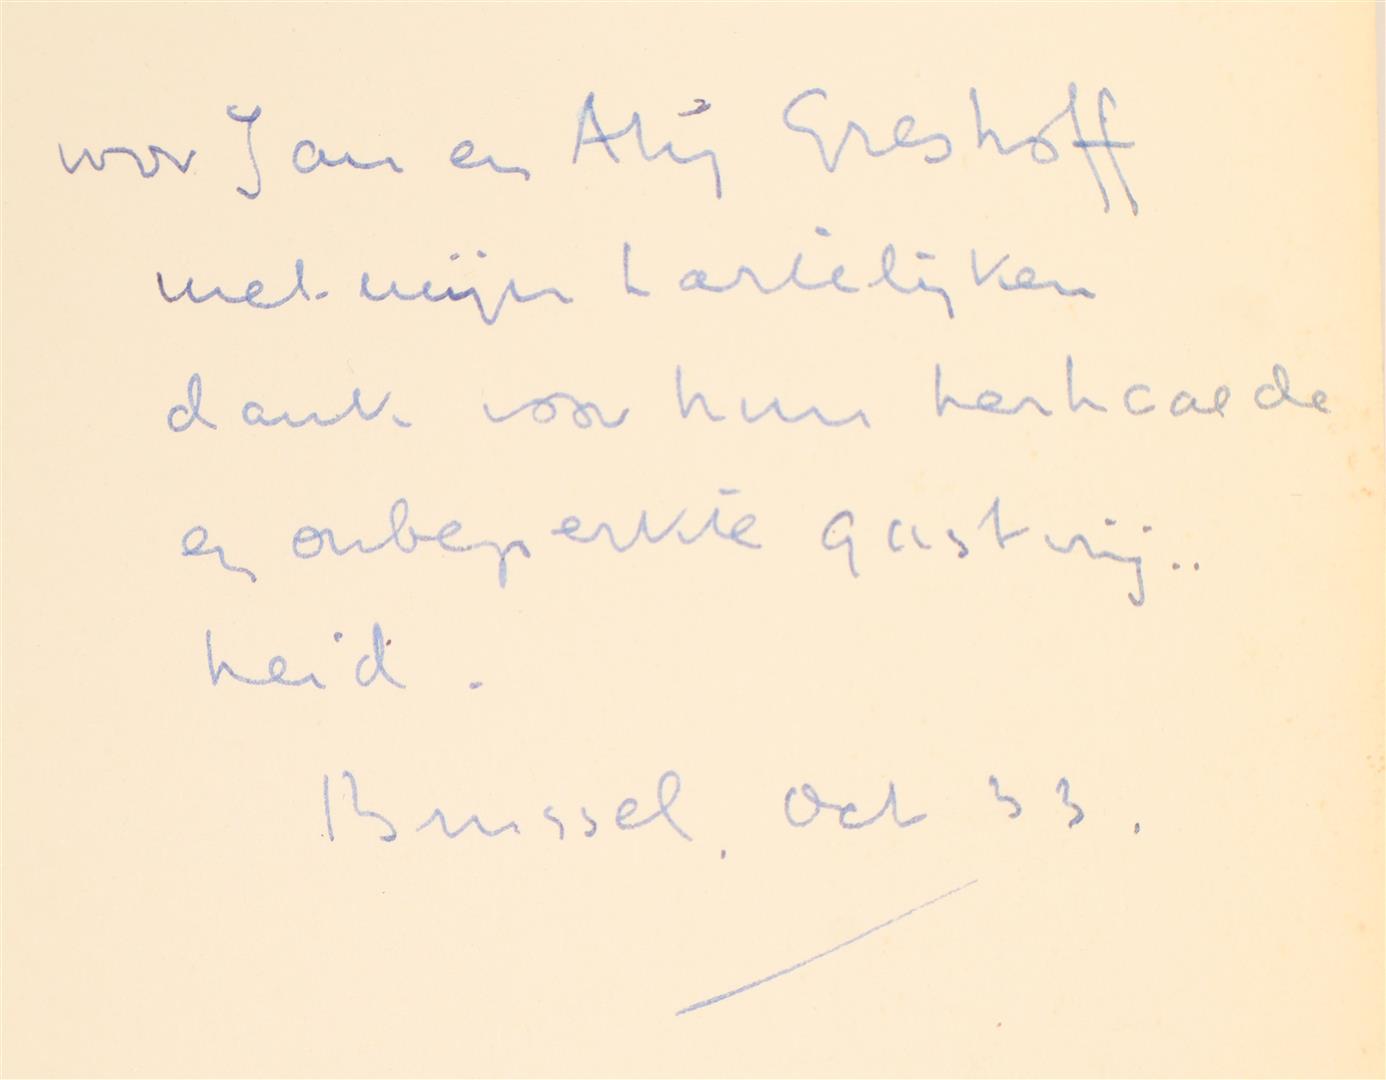 voor Jan en Atij Greshoff
met mijn hartelijken
dank voor hun herhaalde
en onbeperkte gastvrij..
heid.
Brussel, Oct 33.